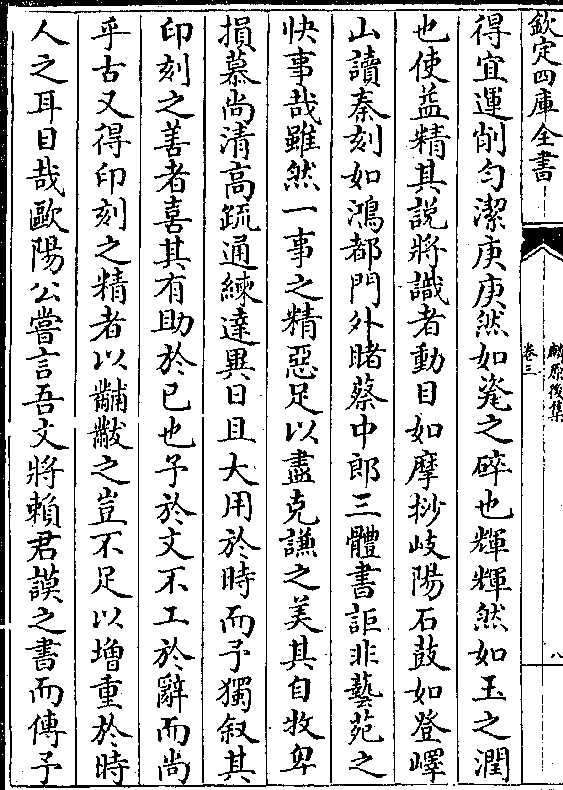 欽定四庫全書
麟原後集
卷三
八
得宜運削勻潔庚庚然如㲯之碎也輝輝然如玉之潤
也使益精其說將識者動目如摩挱岐陽石鼓如登嶧
山讀秦刻如鴻都門外睹蔡中郎三體書詎非藝苑之
快事哉雖然一事之精惡足以盡克謙之美其自牧卑
損慕尚清高疏通練達異日且大用於時而予獨叙其
印刻之善者喜其有助於已也予於文不工於辭而尚
乎古又得印刻之精者以黼黻之豈不足以增重於時
人之耳目哉歐陽公嘗言吾文將賴君謨之書而傳予